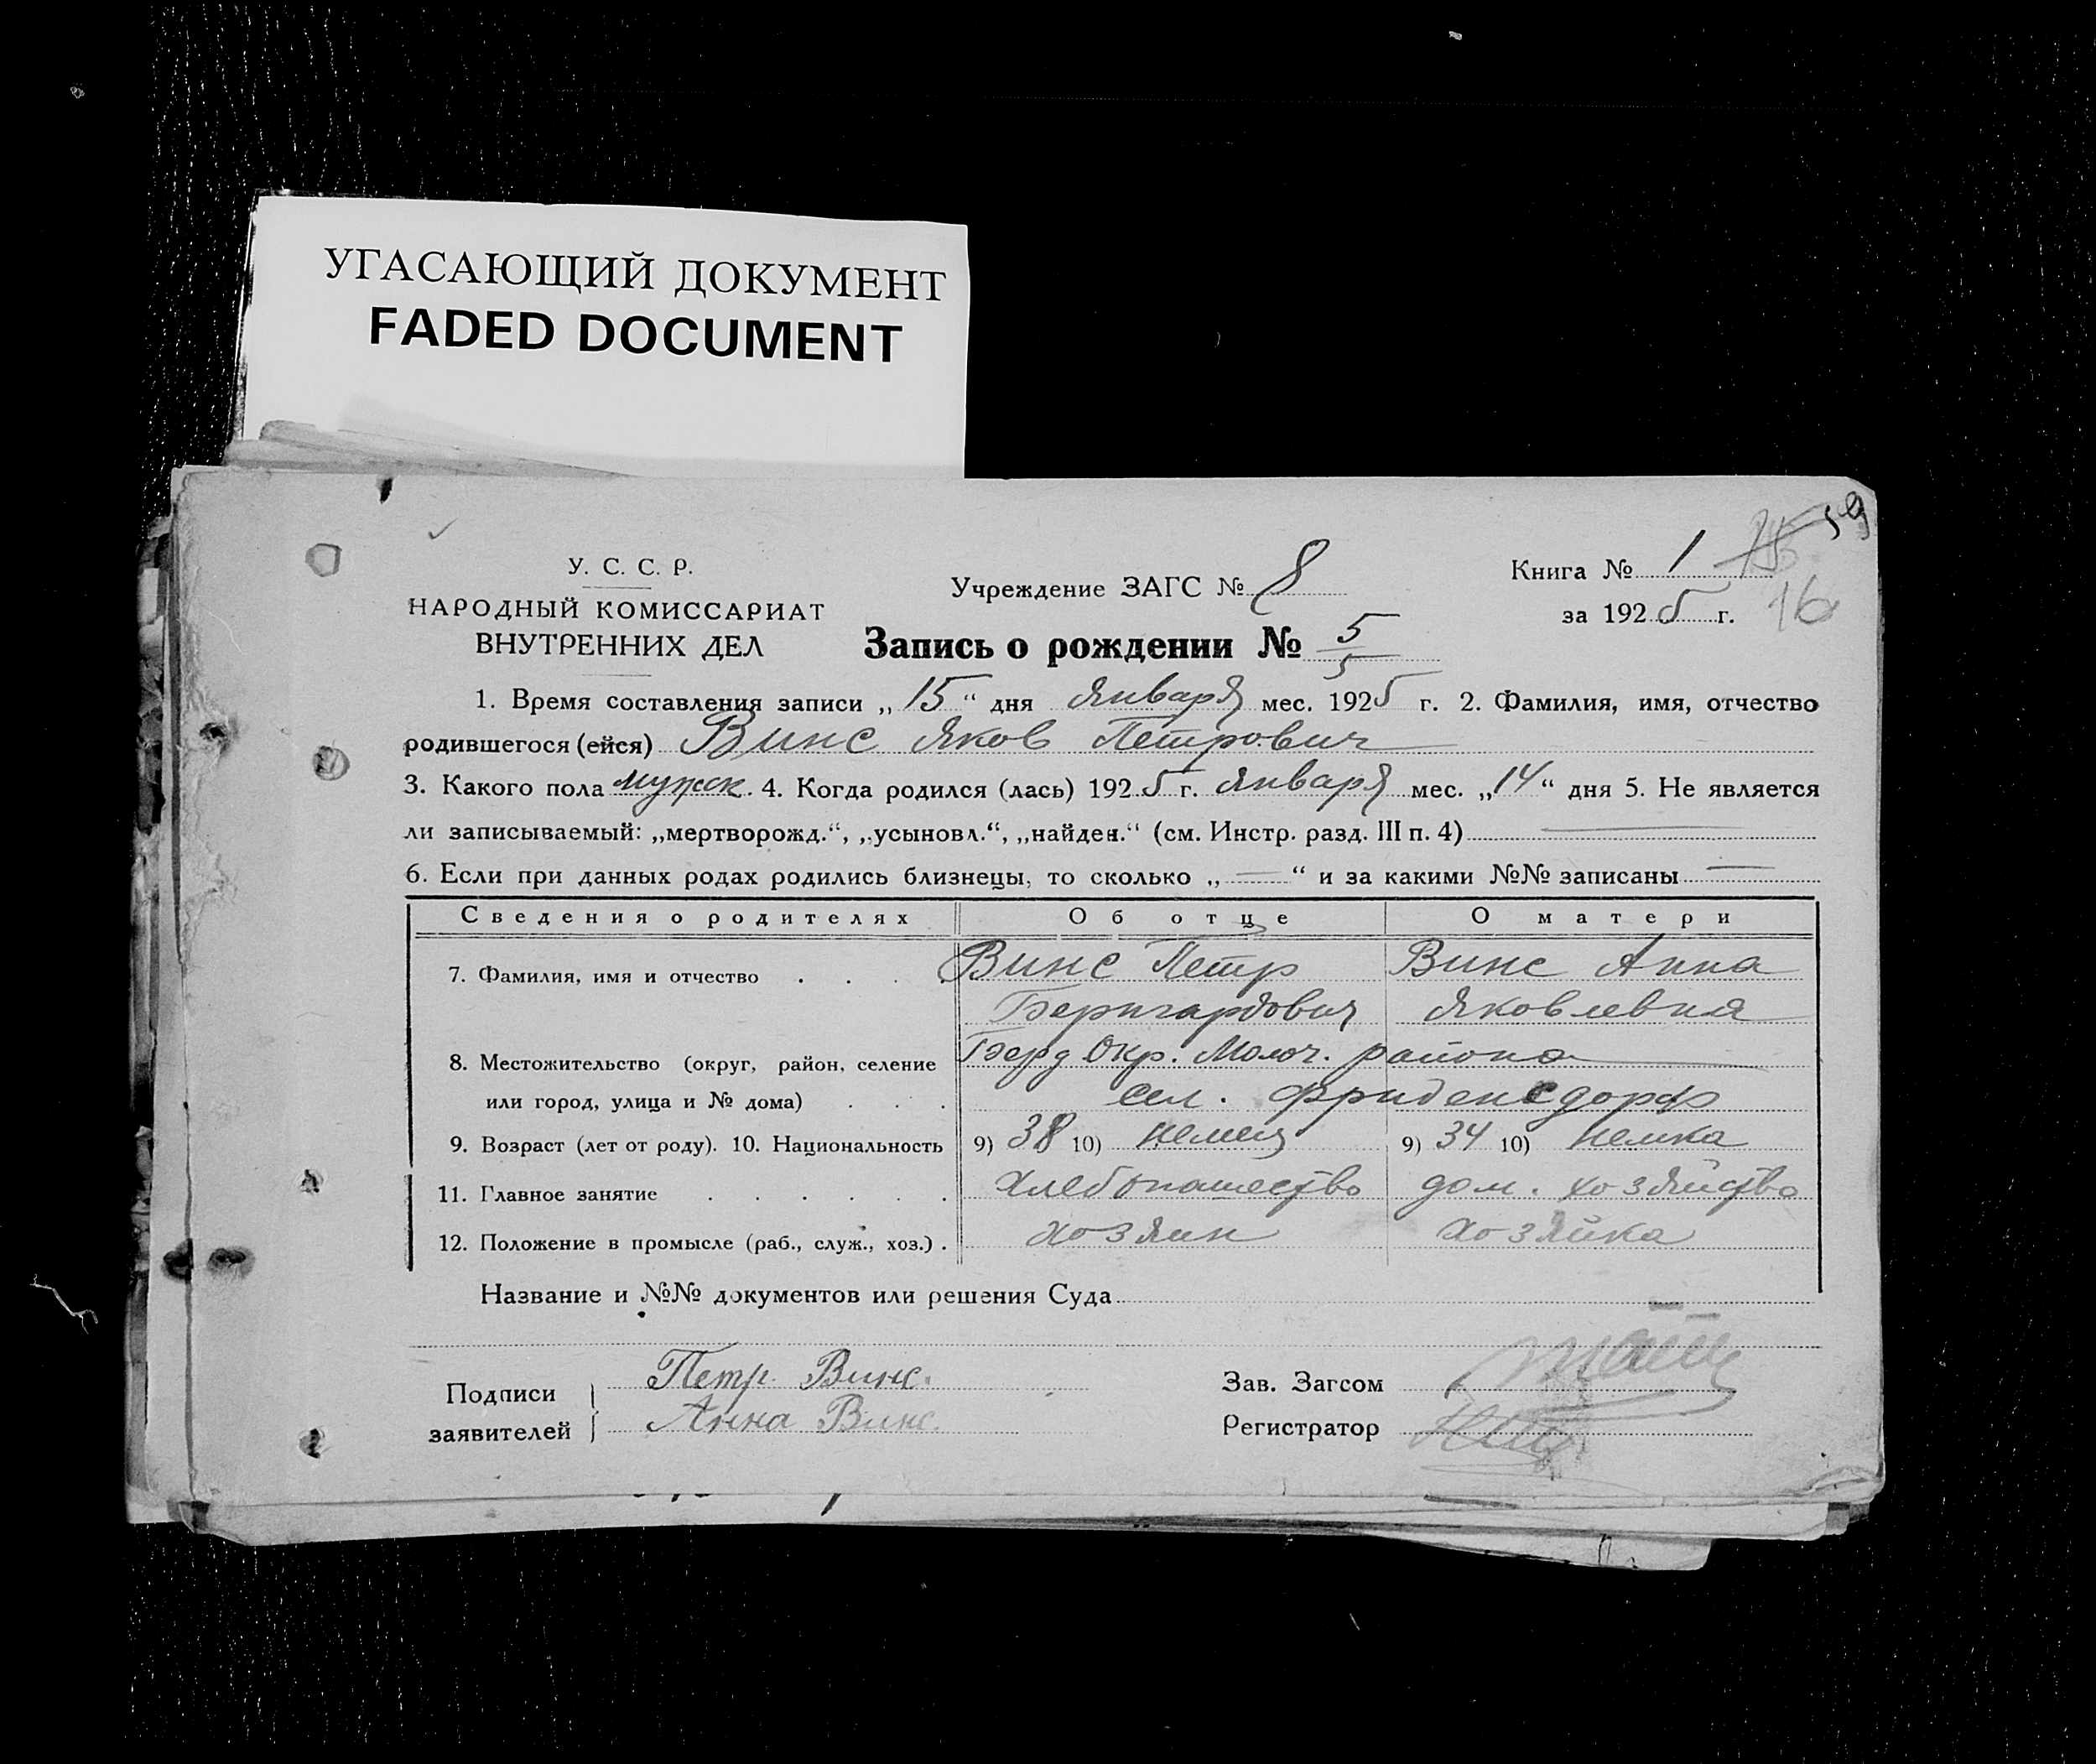 УГАСАЮЩИЙ ДОКУМЕНТ
FADED DOCUMENT
59
У. С. С. Р.
НАРОДНЫЙ КОМИССАРИАТ
ВНУТРЕННИХ ДЕЛ
Учреждение ЗАГС № 8
Книга № 1
за 1925 г. 16
Запись о рождении № 5/5
1. Время составления записи „15“ дня Января мес. 1925 г. 2. Фамилия, имя, отчество
родившегося (ейся) Винс Яков Петрович
3. Какого пола мужск. 4. Когда родился (лась) 1925 г. Января мес. „14“ дня 5. Не является
ли записываемый: „мертворожд.“, „усыновл.“, „найден.“ (см. Инстр. разд. III п. 4) —
6. Если при данных родах родились близнецы, то сколько „—“ и за какими №№ записаны —
Сведения о родителях Об отце О матери
7. Фамилия, имя и отчество . . . . Винс Петр Винс Анна
Бернгардович Яковлевна
8. Местожительство (округ, район, селение Берд Окр. Молоч. района
или город, улица и № дома) . . . сел. Фриденсдорф
9. Возраст (лет от роду). 10. Национальность 9) 38 10) немец 9) 34 10) немка
11. Главное занятие . . . . . . Хлебопашество дом. хозяйство
12. Положение в промысле (раб., служ., хоз.) . хозяин хозяйка
Название и №№ документов или решения Суда
Подписи заявителей
Петр Винс.
Анна Винс.
Зав. Загсом
Регистратор